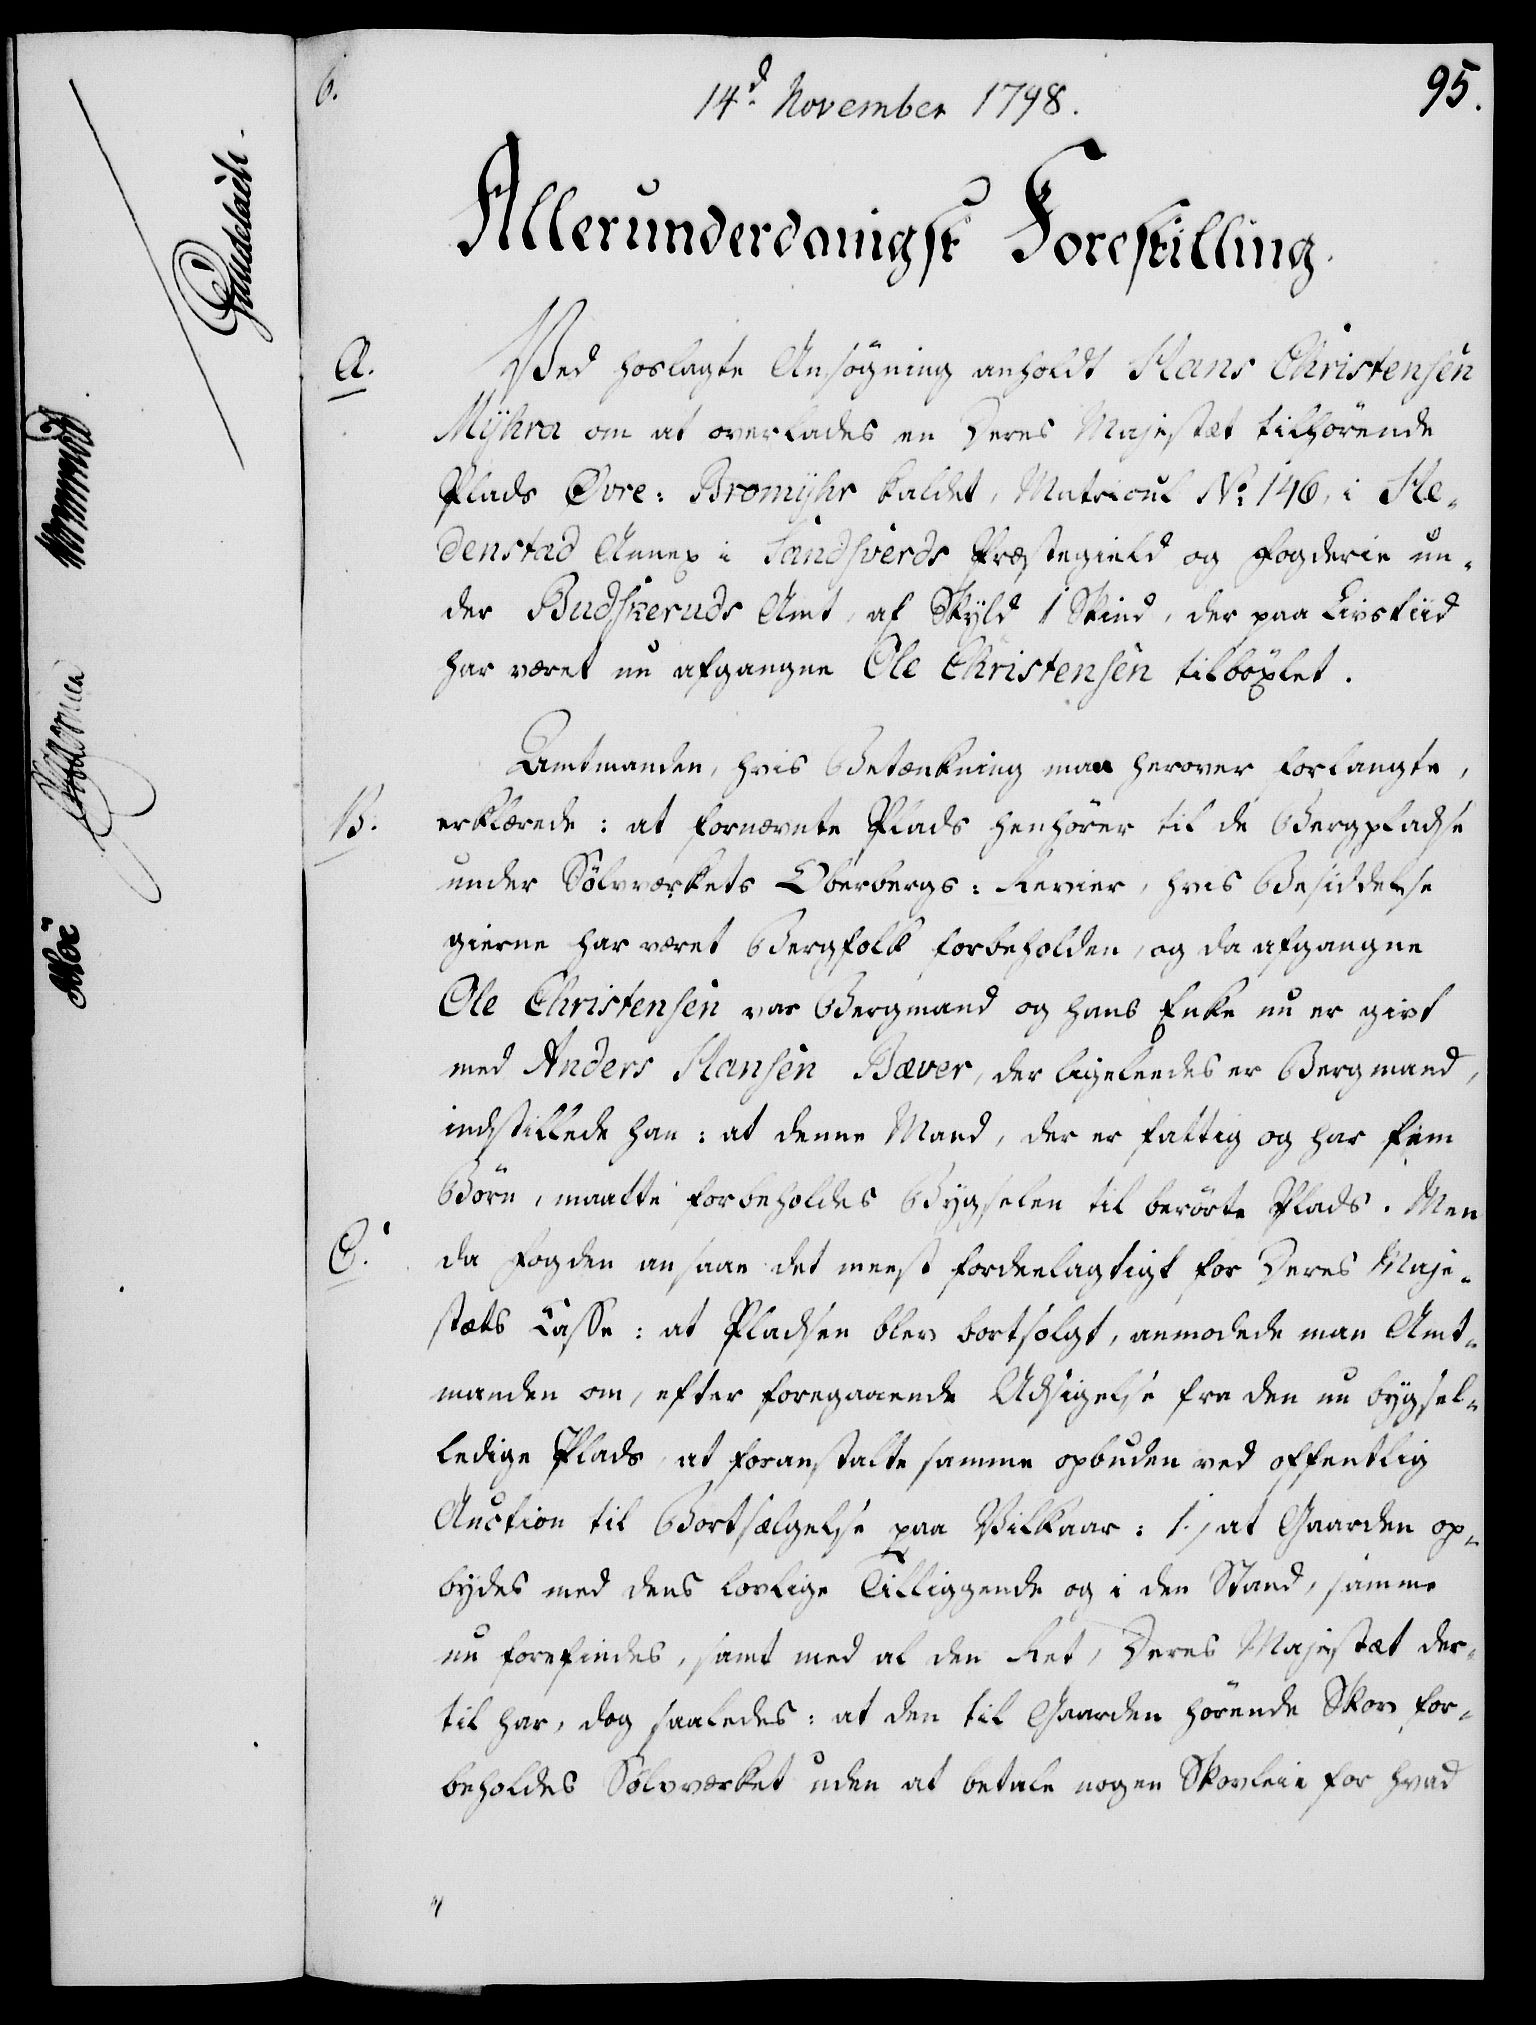 6.
14d. November 1798.
95.
Allerunderdanigst Forestilling.
A.
Ved hoslagte Ansøgning anholdt Hans Christensen
Myhra om at overlades en Deres Majestæt tilhørende
Plads Øvre: Bromyhr kaldet, Matricul No. 146, i He-
denstad Annex i Sandsverds Præstegield og Fogderie un-
der Budskeruds Amt, af Skyld 1 Skind, der paa Livstiid
har været nu afgangne Ole Christensen tilböxlet.
Amtmanden, hvis Betænkning man herover forlangte,
B.
erklærede: at fornævnte Plads henhörer til de Bergpladse
under Sölvværkets Oberbergs: Revier, hvis Besiddelse
gierne har været Bergfolk forbeholden, og da afgangne
Ole Christensen var Bergmand og hans Enke nu er givt
med Anders Hansen Bæver, der ligeleedes er Bergmand,
indstillede han: at denne Mand, der er fattig og har fem
Börn, maatte forbeholdes Bygselen til berörte Plads. Men
C.
da Fogden ansaae det meest fordeelagtigt for Deres Maje-
stæts Casse: at Pladsen blev bortsolgt, anmodede man Amt-
manden om, efter foregaaende Udsigelse fra den nu bygsel-
ledige Plads, at foranstalte samme opbuden ved offentlig
Auction til Bortsælgelse paa Vilkaar: 1.) at Gaarden op-
bydes med dens lovlige Tilliggende og i den Stand, samme
nu forefindes, samt med al den Ret, Deres Majestæt der-
til har, dog saaledes: at den til Gaarden hörende Skov for-
beholdes Sölvværket uden at betale nogen Skovleie for hvad